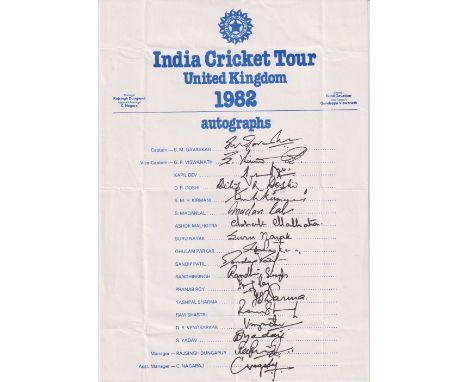 India Cricket Tour
United Kingdom
1982
autographs
Manager
Rajsingh Dungarpur
C. Nagaraj
Captain
Sunil Gavaskar
Gundappa Viswanath
Captain — S. M. GAVASKAR
Vice-Captain — G. R. VISWANATH
KAPIL DEV
D. R. DOSHI Dilip R Doshi
S. M. H. KIRMANI
S. MADANLAL Madan Lal
ASHOK MALHOTRA Ashok Malhotra
SURU NAYAK Suru Nayak
GHULAM PARKAR
SANDIP PATIL Sandip Patil
RANDHIRSINGH Randhir Singh
PRANAB ROY
YASHPAL SHARMA Sharma
RAVI SHASTRI
D. B. VENGSARKAR
S. YADAV
Manager — RAJSINGH DUNGARPUR
Asst. Manager — C. NAGARAJ